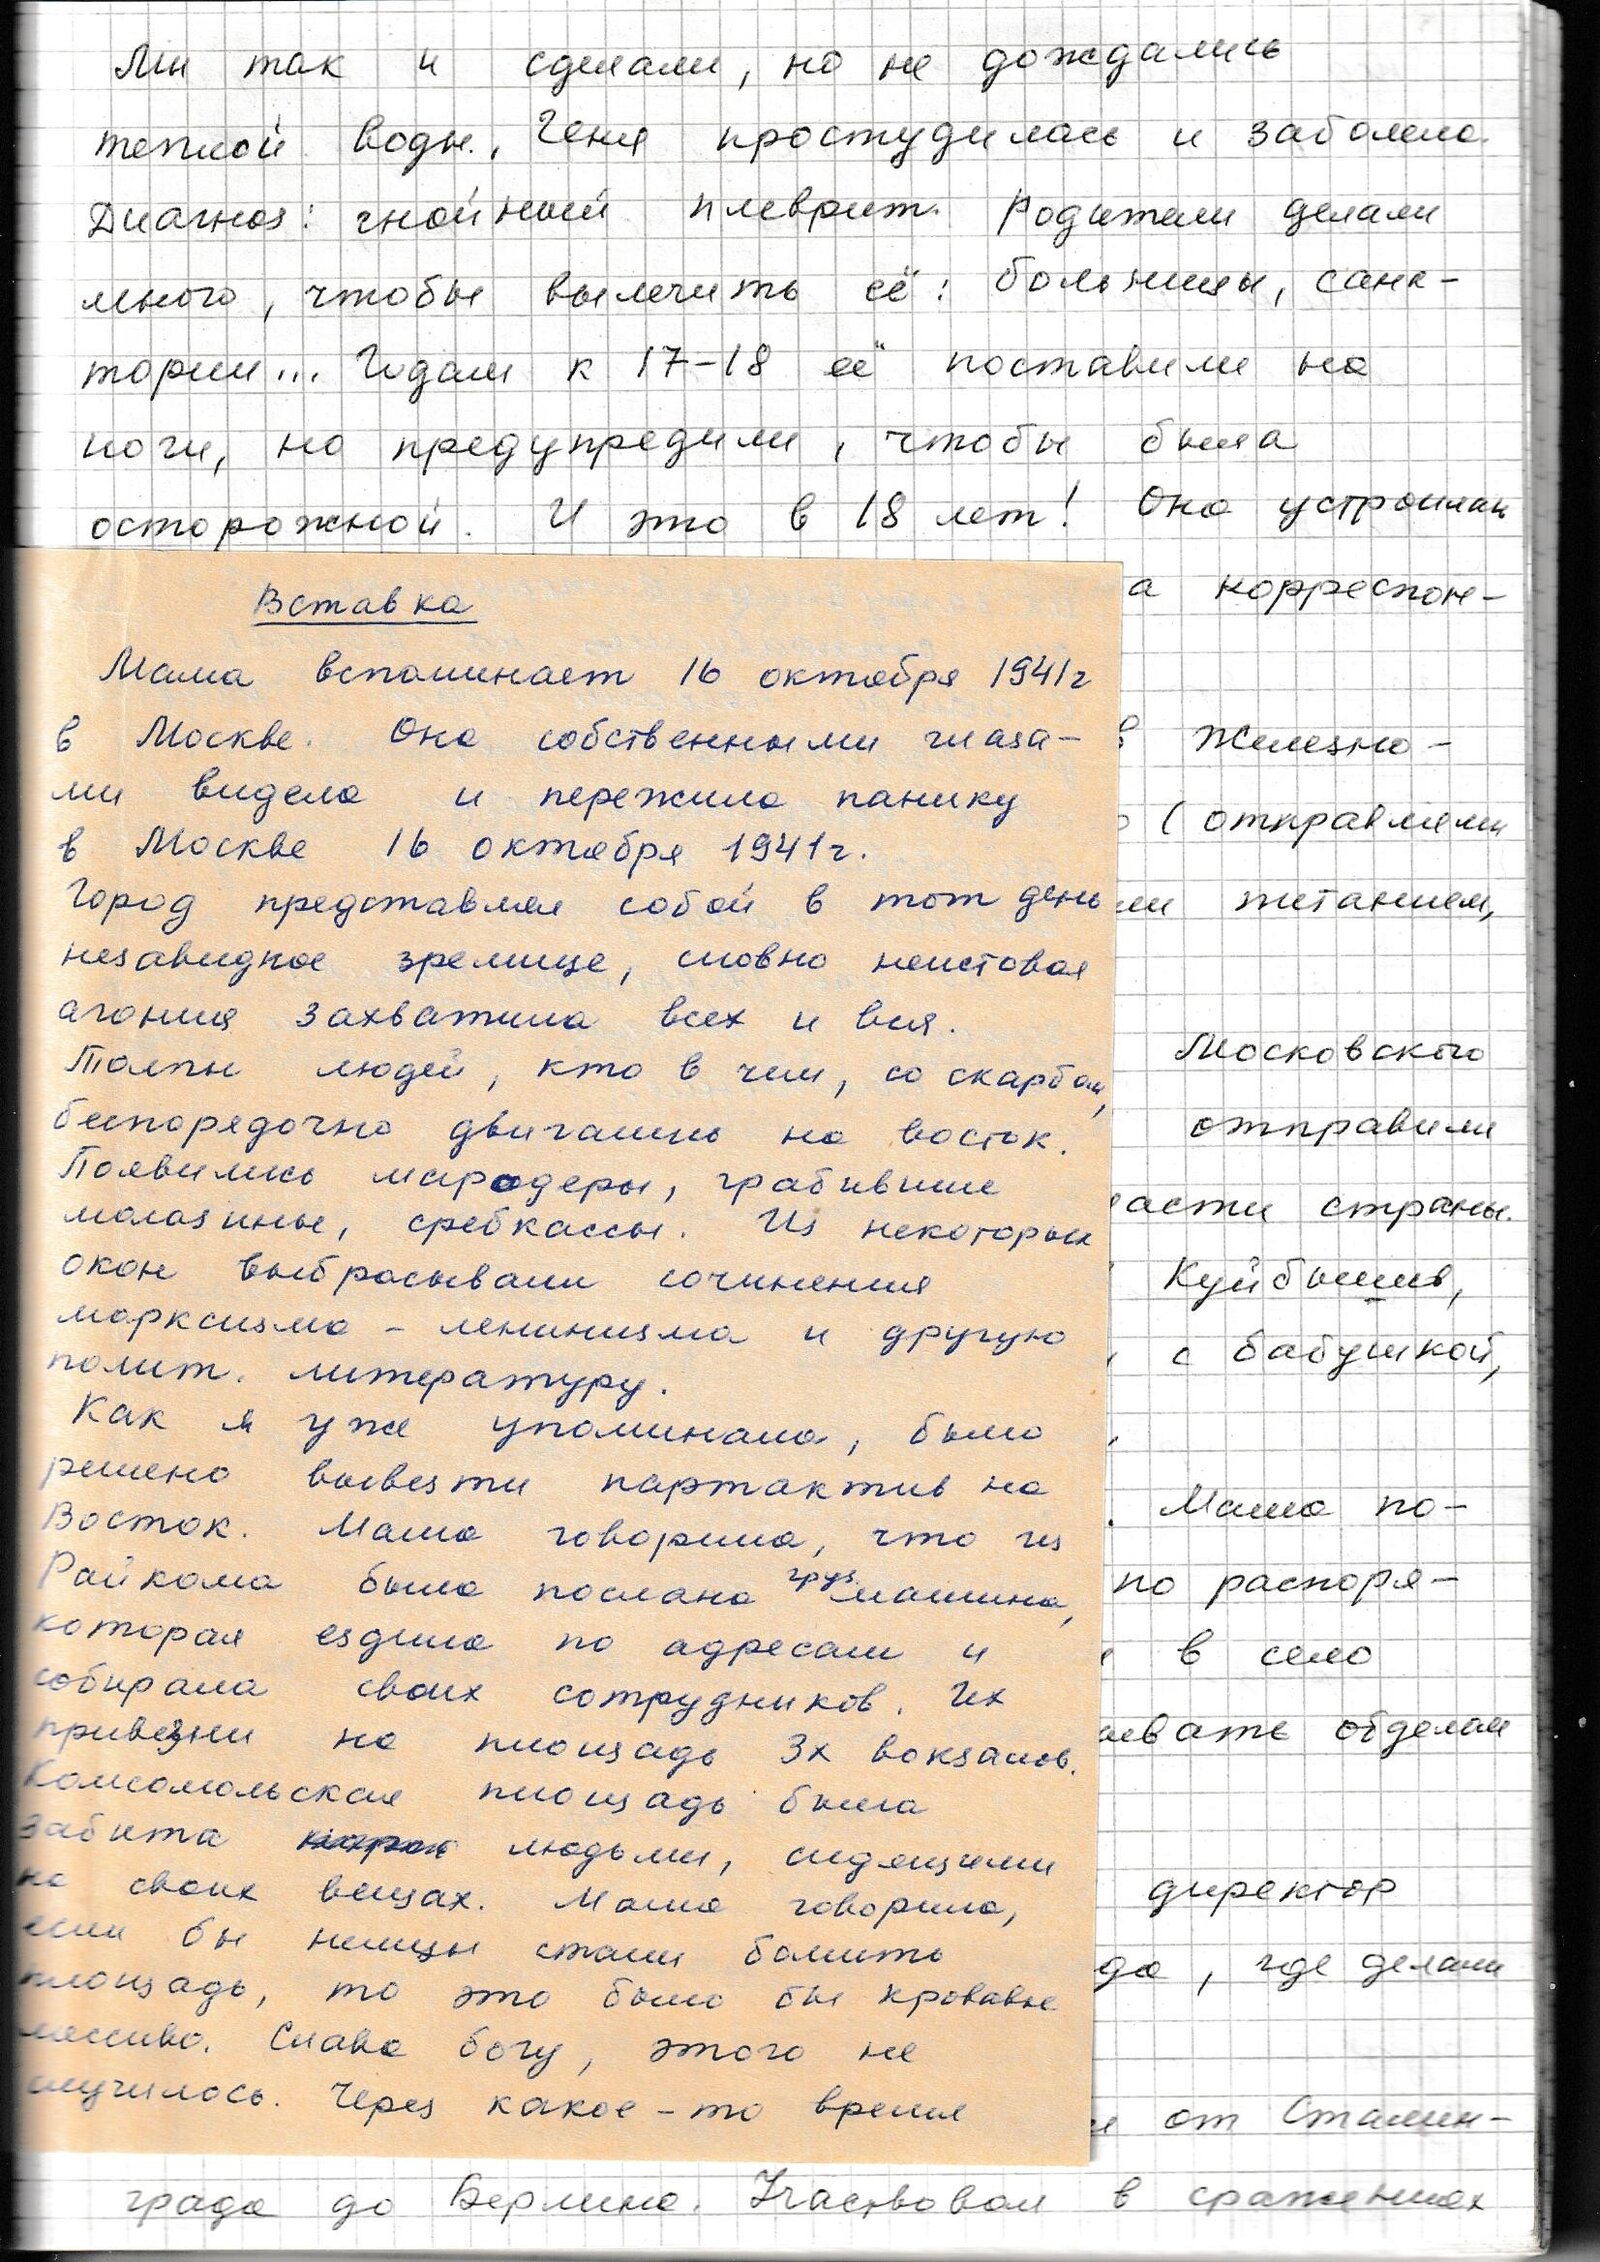 Мы так и сделали, но не дождались
теплой воды. Геня простудилась и заболела.
Диагноз: гнойный плеврит. Родители делали
много, чтобы вылечить её: больницы, сана-
тории... Годам к 17-18 её поставили на
ноги, но предупредили, чтобы была
осторожной. И это в 18 лет! Она устроилась
а корреспон-
в Железно-
о (отправляли
ли питанием,
Московского
отправили
части страны.
Куйбышев,
с бабушкой,
. Мама по-
по распоря-
в село
ивать отделам
директор
да, где делали
и от Сталин-
града до Берлина. Участвовал в сражениях
Вставка
Мама вспоминает 16 октября 1941г
в Москве. Она собственными глаза-
ми видела и пережила панику
в Москве 16 октября 1941г.
Город представлял собой в тот день
незавидное зрелище, словно неистовая
агония захватила всех и вся.
Толпы людей, кто в чем, со скарбом,
беспорядочно двигались на восток.
Появились мародеры, грабившие
магазины, сберкассы. Из некоторых
окон выбрасывали сочинения
марксизма - ленинизма и другую
полит. литературу.
Как я уже упоминала, было
решено вывезти партактив на
Восток. Мама говорила, что из
Райкома была послана груз. машина,
которая ездила по адресам и
собирала своих сотрудников. Их
привезли на площадь 3х вокзалов.
Комсомольская площадь была
забита людьми, сидящими
на своих вещах. Мама говорила,
если бы немцы стали бомбить
площадь, то это было бы кровавое
месиво. Слава богу, этого не
случилось. Через какое-то время